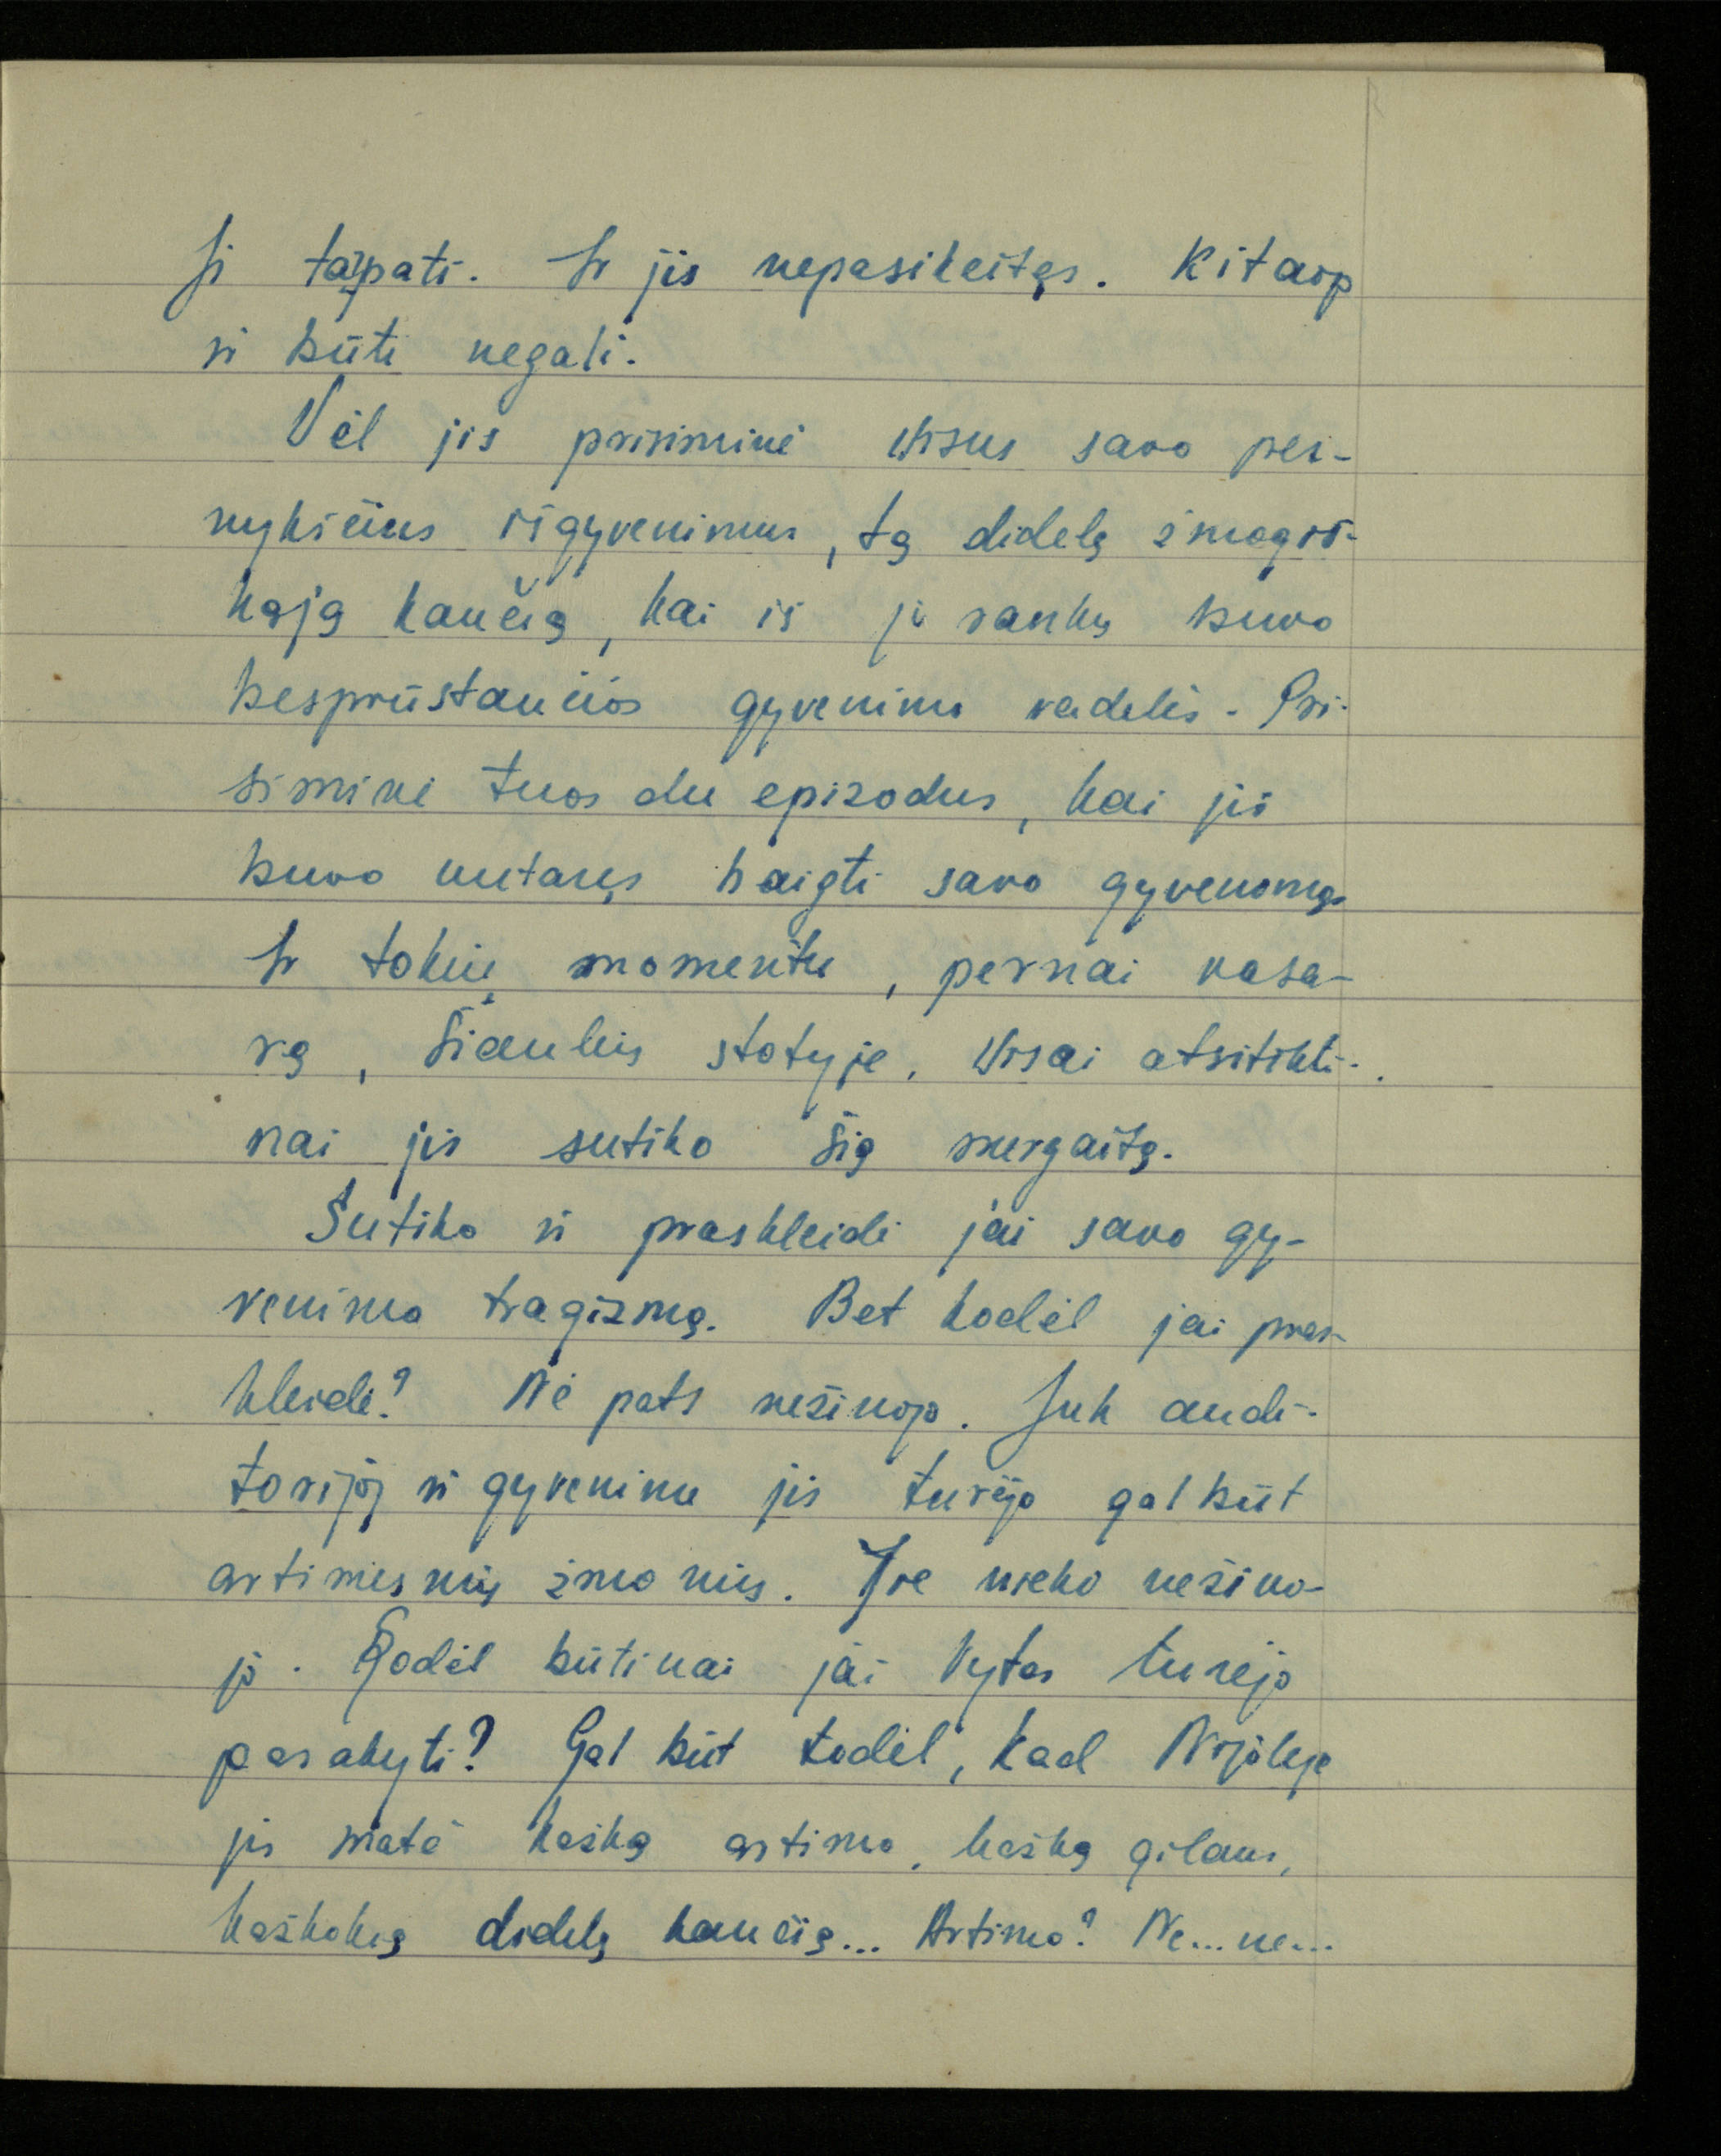 Ji ta pati. Ir jis nepasikeitęs. Kitaip
ir būti negali.
Vėl jis prisiminė visus savo per-
nykščius išgyvenimus, tą didelę žmogiš-
kąją kančią, kai iš jo rankų buvo
besprūstančios gyvenimo vadelės. Pri-
siminė tuos du epizodus, kai jis
buvo nutaręs baigti savo gyvenimą.
Ir tokiu momentu, pernai vasa-
rą, Šiaulių stotyje, visai atsitikti-
nai jis sutiko šią mergaitę.
Sutiko ir praskleidė jai savo gy-
venimo tragizmą. Bet kodėl jai pras-
kleidė? Nė pats nežinojo. Juk audi-
torijoj ir gyvenime jis turėjo gal būt
artimesnių žmonių. Jie nieko nežino-
jo. Kodėl būtinai jai Vytas turėjo
pasakyti? Gal būt todėl, kad Nijolėje
jis matė kažką artimo, kažką gilaus,
kažkokią didelę kančią... Artimo? Ne... ne...